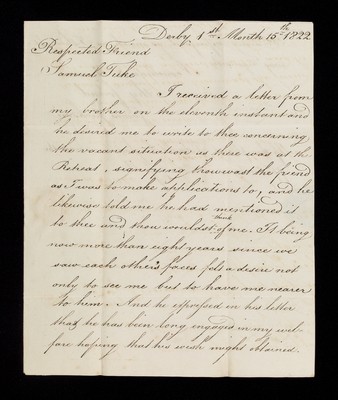 Derby 1st Month 15th 1822
Respected Friend
Samuel Tuke
I received a letter from
my brother on the eleventh instant and
he desired me to write to thee concerning
the vacant situation as there was at the
Retreat, signifying thou wast the friend
as I was to make applications to, and he
likewise told me he had mentioned it
to thee and thou wouldst think of me. It being
now more than eight years since we
saw each others faces felt a desire not
only to see me but to have me nearer
to him. And he expressed in his letter
that he has been long engaged in my wel-
fare hoping that his wish might obtained.